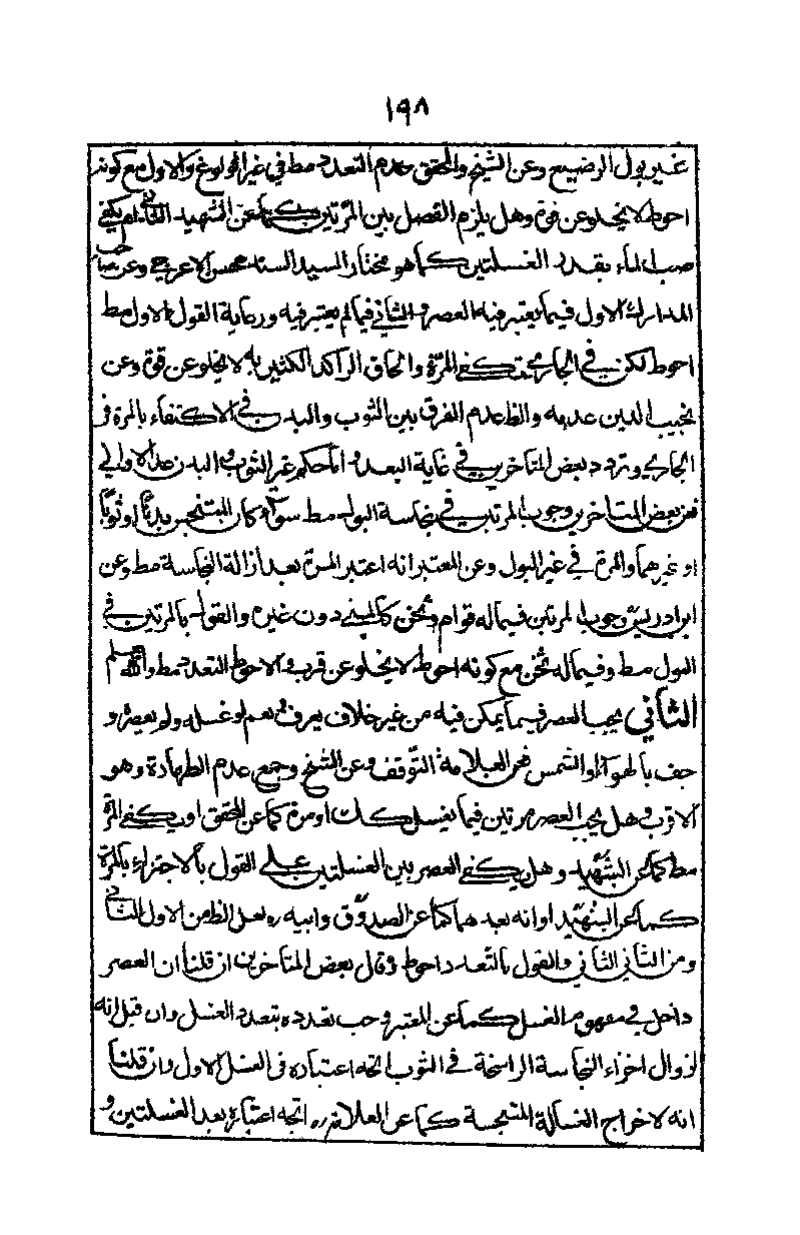 ١٩٨
غير بول الرضيع وعن الشيخ والمحقق عدم التعدد مط في غير الولوغ والاول مع كونه
احوط لا يخلو عن قوة وهل يلزم الفصل بين المرتين كما عن الشهيد الثاني ام يكفي
صب الماء بقدر الغسلتين كما هو مختار السيد السند محسن الاعرجي وعن صاحب
المدارك الاول فيما يعتبر فيه العصر والثاني فيما لم يعتبر فيه ورعاية القول الاول مط
احوط لكن في الجاري تكفي المرة والحاق الراكد الكثير به لا يخلو عن قوة وعن
نجيب الدين عدمه والظ عدم الفرق بين الثوب والبدن في الاكتفاء بالمرة في
الجاري وتردد بعض المتاخرين في غاية البعد واما حكم غير الثوب والبدن من الاوالي
فعن بعض المتاخرين وجوب المرتين في نجاسة البول مط سواء كان المتنجس بدنا او ثوبا
او غيرهما والمرة في غير البول وعن المعتبر انه اعتبر المرة بعد ازالة النجاسة مط وعن
ابن ادريس وجوب المرتين فيما له قوام وثخن كالمني دون غيره والقول بالمرتين في
البول مط وفيما له ثخن مع كونه احوط لا يخلو عن قرب والاحوط التعدد مط والله يعلم
الثاني يجب العصر فيما يمكن فيه من غير خلاف يعرف نعم لو غسله ولم يعصره و
جف بالهواء او الشمس فعن العلامة التوقف وعن الشيخ وجمع عدم الطهارة وهو
الاقرب وهل يجب العصر مرتين فيما يغسل كك او مرة كما عن المحقق او يكفي المرة
مط كما عن الشهيد وهل يكفي العصر بين الغسلتين على القول بالاجتزاء بالمرة
كما عن الشهيد او انه بعدهما كما عن الصدوق وابيه ره لعل الظ من الاول الثاني
ومن الثاني الثاني والقول بالتعدد احوط وقال بعض المتاخرين ان قلنا ان العصر
داخل في مفهوم الغسل كما عن المعتبر وجب تعدده بتعدد الغسل وان قيل انه
لزوال اجزاء النجاسة الراسخة في الثوب اتجه اعتباره في الغسل الاول وان قلنا
انه لاخراج الغسالة المتنجسة كما عن العلامة ره اتجه اعتباره بعد الغسلتين و